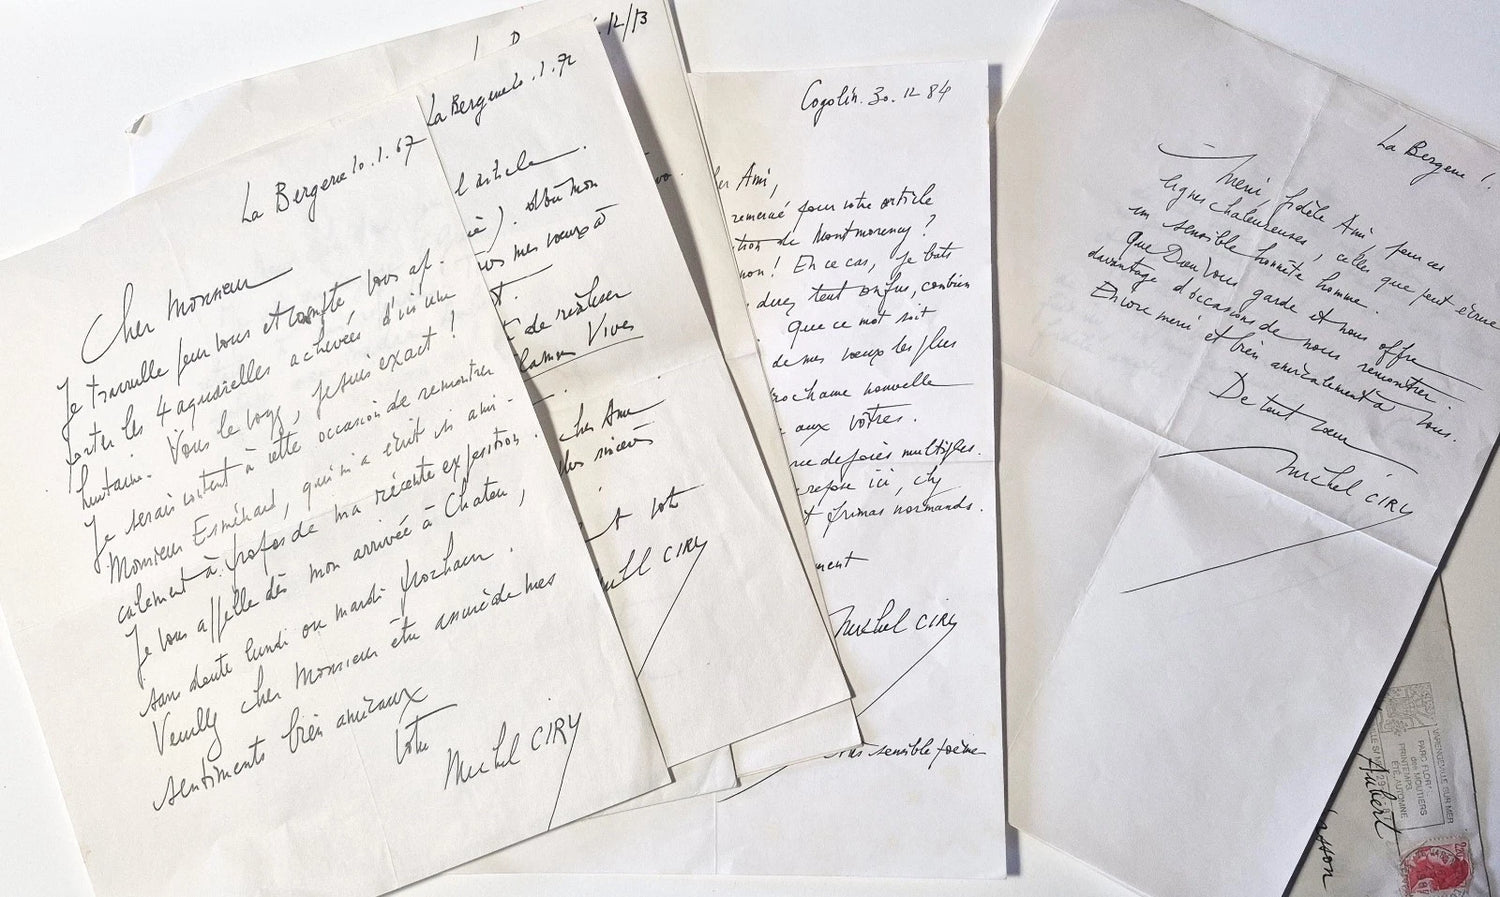 La Bergerie 10.1.67
Cher Monsieur
Je travaille pour vous et compte vous ap-
porter les 4 aquarelles achevées d'ici une
huitaine. Vous le voyez, je suis exact !
Je serais content à cette occasion de remontrer
Monsieur Esménard, qui m'a écrit si ami-
calement à propos de ma récente exposition.
Je vous appelle dès mon arrivée à Chatou,
sans doute lundi ou mardi prochain.
Veuillez cher Monsieur être assuré de mes
sentiments bien amicaux
Votre
Michel CIRY
12/13
La Bergerie 10.1.72
l'article
mes vœux à
de réaliser
Vives
cher Ami
sincères
et votre
CIRY
Cogolin. 30. 12 84
Ami,
remercié pour votre article
de Montmorency ?
non ! En ce cas, je bats
tout confus, combien
que ce mot soit
de mes vœux les plus
prochaine nouvelle
aux vôtres.
de joies multiples.
repose ici,
frimas normands.
ment
Michel CIRY
sensible poème
La Bergerie 1.
Merci, fidèle Ami, pour ces
lignes chaleureuses, celles que peut écrire
un sensible honnête homme.
Que Dieu vous garde et nous offre
davantage d'occasions de nous rencontrer.
Encore merci et bien amicalement à vous.
De tout cœur
Michel CIRY
VARENGEVILLE SUR MER
PARC FLOR
des MOUTIERS
PRINTEMPS
ETE AUTOMNE
Aubert
asson
2,20